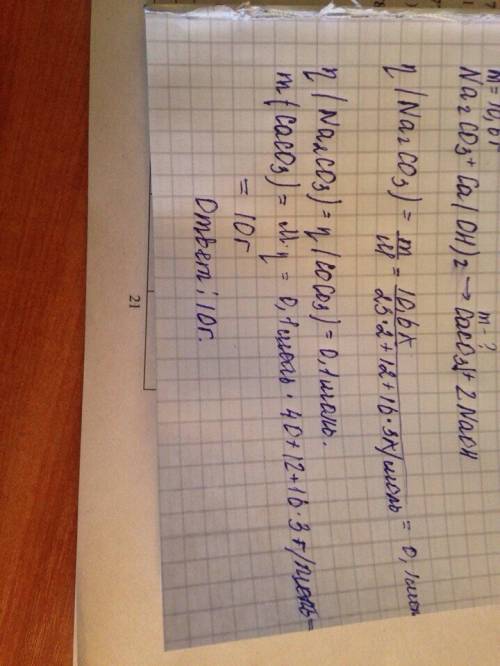 m = 10,6г
m ?
Na2CO3 + Ca(OH)2 → CaCO3↓ + 2NaOH
η (Na2CO3) = m/M = 10,6г / 23·2+12+16·3г/моль = 0,1мол
η (Na2CO3) = η (CaCO3) = 0,1моль.
m (CaCO3) = M·η = 0,1моль · 40+12+16·3 г/моль =
= 10г
Ответ: 10г.
21